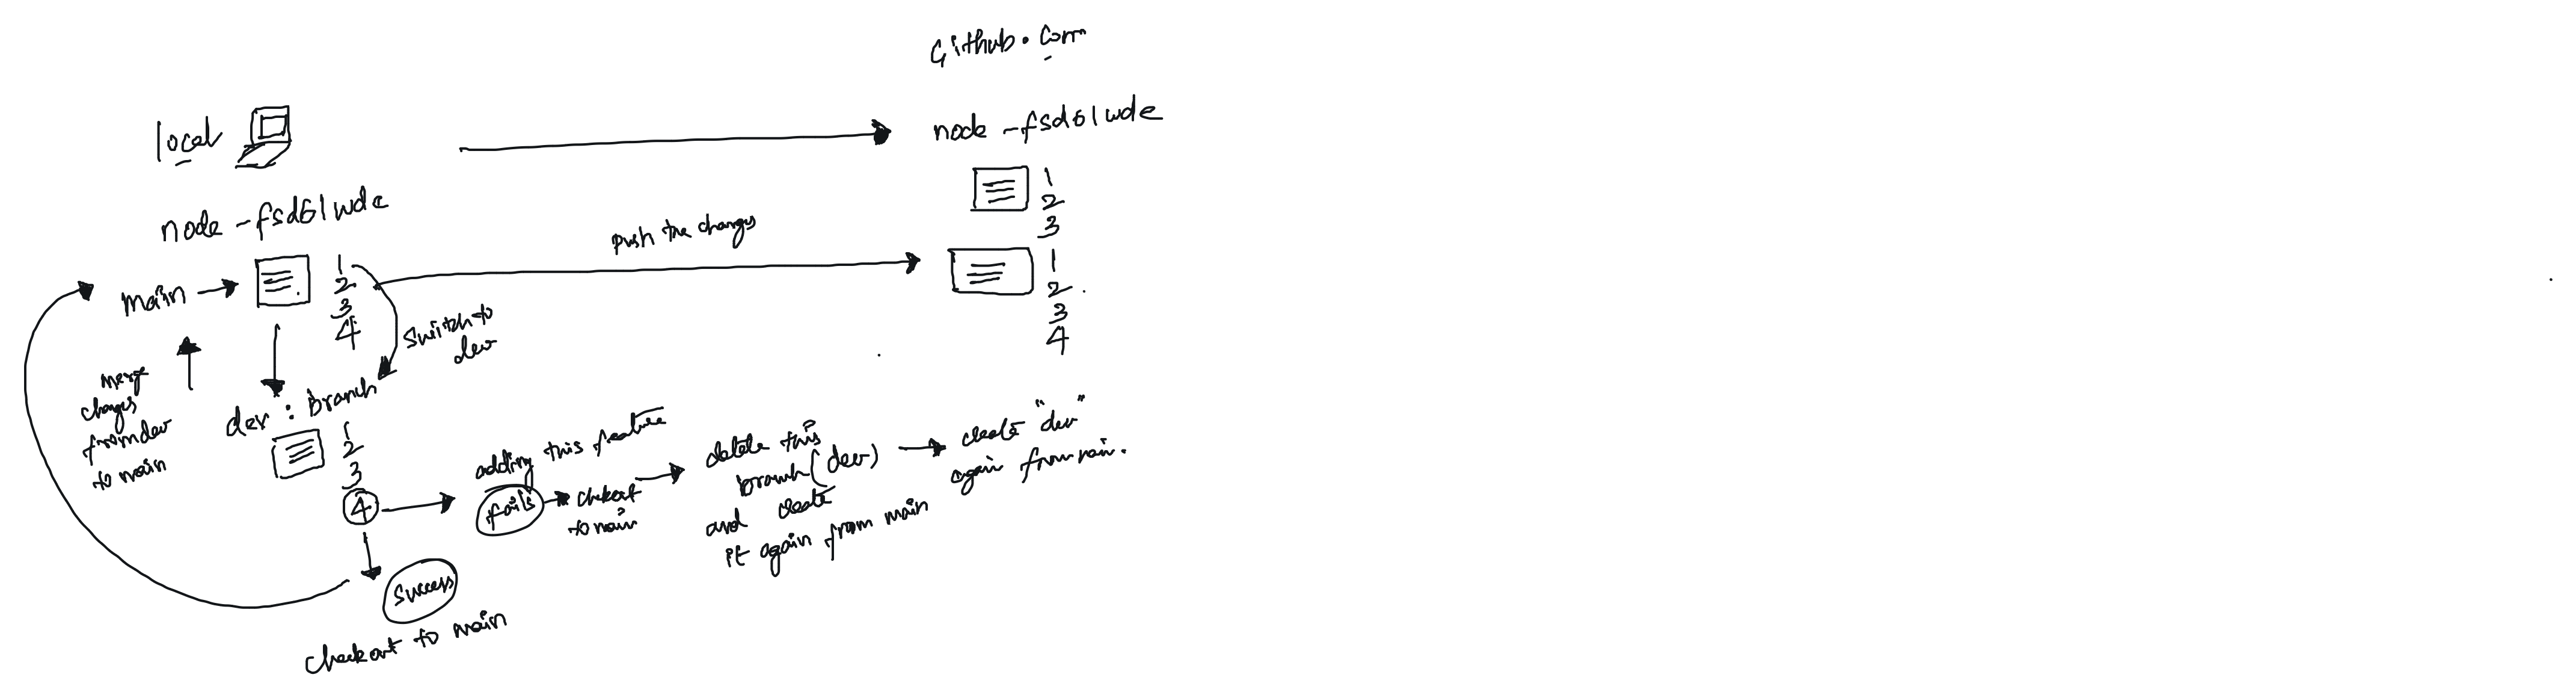 Github.com
local
node-fsd61wde
node-fsd61wde
1
2
3
push the changes
main
1
2
3
4
1
2
3
4
switch to
dev
merge
changes
from dev
to main
dev : branch
1
2
3
4
adding this feature
fails
checkout
to main
delete this
branch (dev)
and create
it again from main
create "dev"
again from main.
success
checkout to main